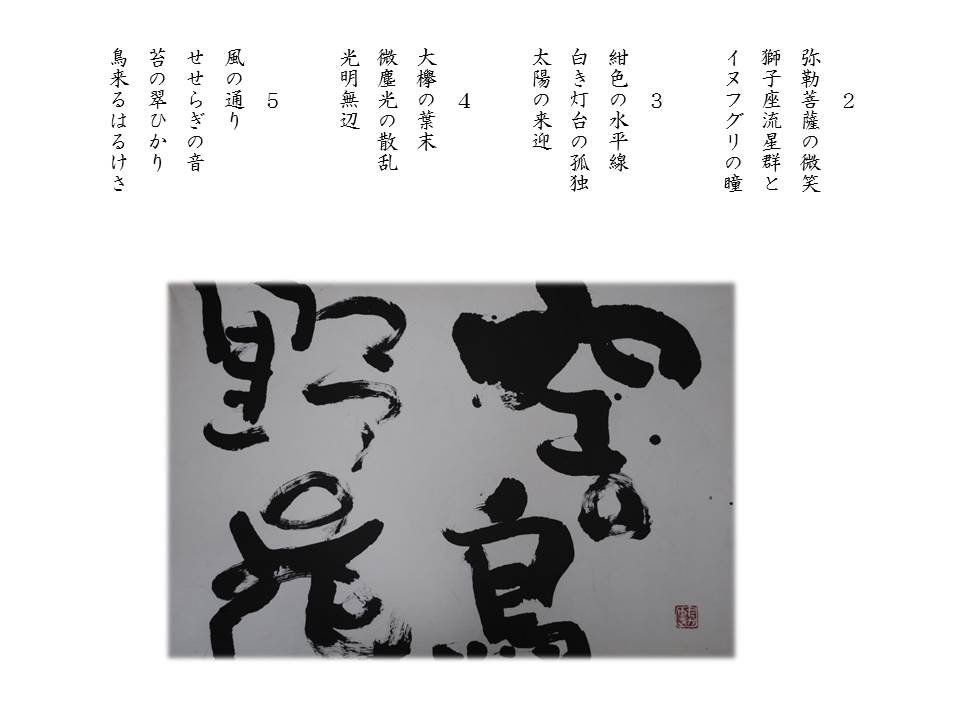 ２
弥勒菩薩の微笑
獅子座流星群と
イヌフグリの瞳
３
紺色の水平線
白き灯台の孤独
太陽の来迎
４
大欅の葉末
微塵光の散乱
光明無辺
５
風の通り
せせらぎの音
苔の翠ひかり
鳥来るはるけさ
空の
鳥
野の
花